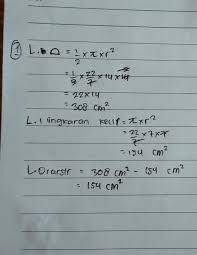 1 L. ⌓ = 1/2 x π x r²
= 1/2 x 22/7 x 14 x 14
= 22 x 14
= 308 cm²
L. 1 lingkaran kecil = π x r²
= 22/7 x 7 x 7
= 154 cm²
L. Diarsir = 308 cm² - 154 cm²
= 154 cm²